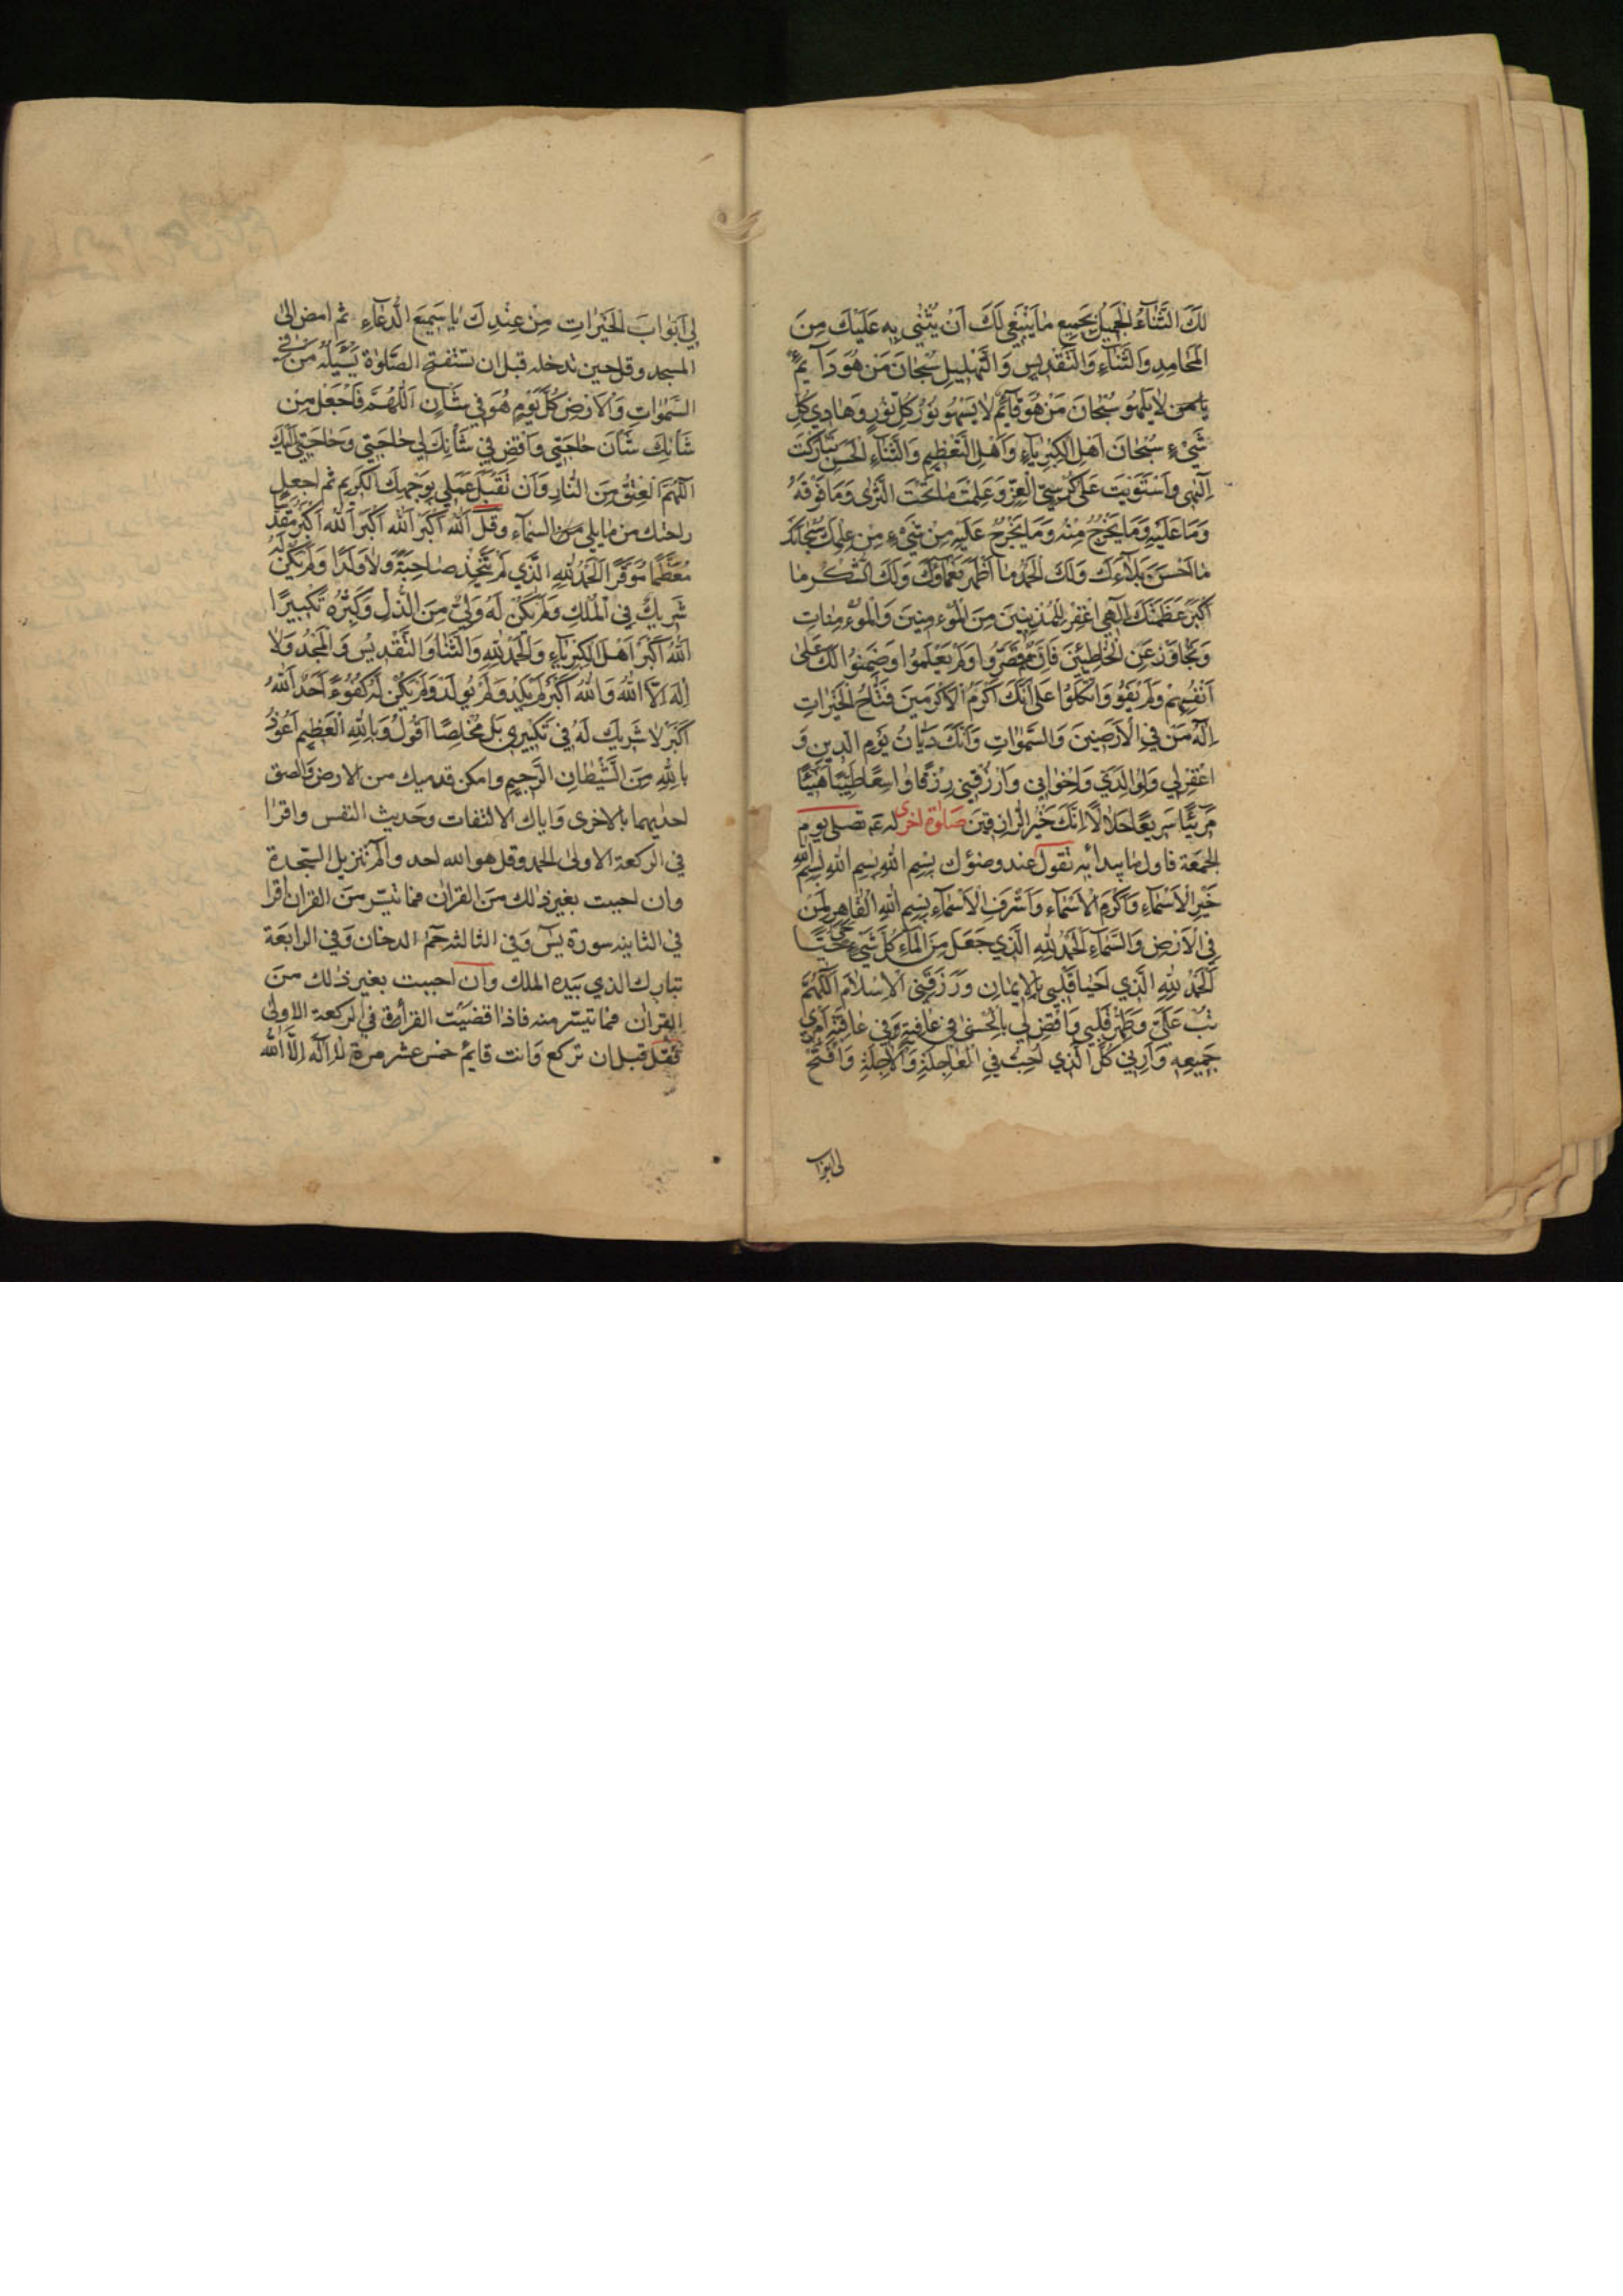 لَكَ الثَّنَاءُ الْجَمِيلُ بِجَمِيعِ مٰا يَنْبَغِي لَكَ اَنْ يُثْنٰى بِهِ عَلَيْكَ مِنَ
الْمَحٰامِدِ وَالثَّنٰاءِ وَالتَّقْدِيسِ وَالتَّهْلِيلِ سُبْحٰانَ مَنْ هُوَ دَآئِمٌ
لاٰ يَلْهُو سُبْحٰانَ مَنْ هُوَ قٰآئِمٌ لاٰ يَسْهُو نُورُ كُلِّ نُورٍ وَهٰادِي كُلِّ
شَيْءٍ سُبْحٰانَ اَهْلِ الْكِبْرِيٰآءِ وَاَهْلِ التَّعْظِيمِ وَالثَّنٰآءِ الْحَسَنِ تَبٰارَكْتَ
اِلٰهِي وَاسْتَوَيْتَ عَلٰى كُرْسِيِّ الْعِزِّ وَعَلِمْتَ مٰا تَحْتَ الثَّرٰى وَمَا فَوْقَهُ
وَمٰا عَلَيْهِ وَمٰا يَخْرُجُ مِنْهُ وَمٰا يَخْرُجُ عَلَيْهِ مِنْ شَيْءٍ مِنْ عِلْمِكَ سُبْحٰانَكَ
مٰا اَحْسَنَ بَلاٰءَكَ وَلَكَ الْحَمْدُ مٰا اَظْهَرَ نَعْمٰاءَكَ وَلَكَ الشُّكْرُ مٰا
اَكْبَرَ عَظَمَتَكَ اِلٰهِي اغْفِرْ لِلْمُذْنِبِينَ مِنَ الْمُؤْمِنِينَ وَالْمُؤْمِنٰاتِ
وَتَجٰاوَزْ عَنِ الْخٰاطِئِينَ فَاِنَّهُمْ قَصَّرُوا وَلَمْ يَعْلَمُوا وَضَمِنُوا لَكَ عَلٰى
اَنْفُسِهِمْ وَلَمْ يَفُوا وَاتَّكَلُوا عَلٰى اَنَّكَ اَكْرَمُ الْاَكْرَمِينَ فَتّٰاحُ الْخَيْرٰاتِ
اِلٰهُ مَنْ فِي الْاَرَضِينَ وَالسَّمٰوٰاتِ وَاَنَّكَ دَيّٰانُ يَوْمِ الدِّينِ وَ
اغْفِرْ لِي وَلِوٰالِدَيَّ وَلِاِخْوٰانِي وَارْزُقْنِي رِزْقًا وٰاسِعًا طَيِّبًا هَنِيئًا
مَرِيئًا سَرِيعًا حَلاٰلاً اِنَّكَ خَيْرُ الرّٰازِقِينَ صَلٰوة اخرى له عم تصلى يوم
الجمعة فاول ما يبدأ به تقول عند وضوئك بِسْمِ اللهِ بِسْمِ اللهِ بِسْمِ اللهِ
خَيْرِ الْاَسْمٰآءِ وَاَكْرَمِ الْاَسْمٰآءِ وَاَشْرَفِ الْاَسْمٰآءِ بِسْمِ اللهِ الْقٰاهِرِ لِمَنْ
فِي الْاَرْضِ وَالسَّمٰآءِ الْحَمْدُ لِلّٰهِ الَّذِي جَعَلَ مِنَ الْمٰآءِ كُلَّ شَيْءٍ حَيٍّ
اَلْحَمْدُ لِلّٰهِ الَّذِي اَحْيٰا قَلْبِي بِالْاِيمٰانِ وَرَزَقَنِي الْاِسْلاٰمَ اَللّٰهُمَّ
تُبْ عَلَيَّ وَطَهِّرْ قَلْبِي وَاقْضِ لِي بِالْحُسْنٰى فِي عٰافِيَةٍ وَفِي عٰاقِبَةِ اَمْرِي
جَمِيعِهِ وَاَرِنِي كُلَّ الَّذِي اُحِبُّ فِي الْعٰاجِلَةِ وَالْآجِلَةِ وَافْتَحْ
لى ابواب
لِي اَبْوٰابَ الْخَيْرٰاتِ مِنْ عِنْدِكَ يٰا سَمِيعَ الدُّعٰآءِ ثم امض الى
المسجد وقل حين تدخله قبل ان تستفتح الصَّلوٰة يَسْئَلُهُ مَنْ فِي
السَّمٰوٰاتِ وَالْاَرْضِ كُلَّ يَوْمٍ هُوَ فِي شَأْنٍ اَللّٰهُمَّ فَاجْعَلْ مِنْ
شَأْنِكَ شَأْنَ حٰاجَتِي وَاقْضِ فِي شَأْنِكَ لِي حٰاجَتِي وَحٰاجَتِي اِلَيْكَ
اللّٰهُمَّ الْعِتْقُ مِنَ النّٰارِ وَاَنْ تَقْبَلَ عَمَلِي بِوَجْهِكَ الْكَرِيمِ ثم اجعل
راحتك من ما يلى السماء وقل اَللهُ اَكْبَرُ اَللهُ اَكْبَرُ اَللهُ اَكْبَرُ مُقَدَّسًا
مُعَظَّمًا مُوَقَّرًا اَلْحَمْدُ لِلّٰهِ الَّذِي لَمْ يَتَّخِذْ صٰاحِبَةً وَلاٰ وَلَدًا وَلَمْ يَكُنْ لَهُ
شَرِيكٌ فِي الْمُلْكِ وَلَمْ يَكُنْ لَهُ وَلِيٌّ مِنَ الذُّلِّ وَكَبِّرْهُ تَكْبِيرًا
اَللهُ اَكْبَرُ اَهْلَ الْكِبْرِيٰآءِ وَالْحَمْدُ لِلّٰهِ وَالثَّنٰآءُ وَالتَّقْدِيسُ وَالْمَجْدُ وَلاٰ
اِلٰهَ اِلاَّ اللهُ وَاللهُ اَكْبَرُ لَمْ يَلِدْ وَلَمْ يُولَدْ وَلَمْ يَكُنْ لَهُ كُفُوًا اَحَدٌ اَللهُ
اَكْبَرُ لاٰ شَرِيكَ لَهُ فِي تَكْبِيرِي بَلْ مُخْلِصًا اَقُولُ وَبِاللهِ الْعَظِيمِ اَعُوذُ
بِاللهِ مِنَ الشَّيْطٰانِ الرَّجِيمِ وامكن قدميك من الارض والصق
احديهما بالاخرى واياك الالتفات وحديث النفس واقرا
في الركعة الاولى الحمد وقل هو الله احد والم تنزيل السجدة
وان احببت بغير ذلك من القران فما تيسر من القران واقرا
في الثانيه سورة يس وفي الثالثه حم الدخان وفي الرابعة
تبارك الذي بيده الملك وان احببت بغير ذلك من
القران فما تيسر منه فاذا قضيت القرأة في الركعة الاولى
فقل قبل ان تركع وانت قايم خمس عشر مرة لٰا اِلٰهَ اِلَّا اللهُ